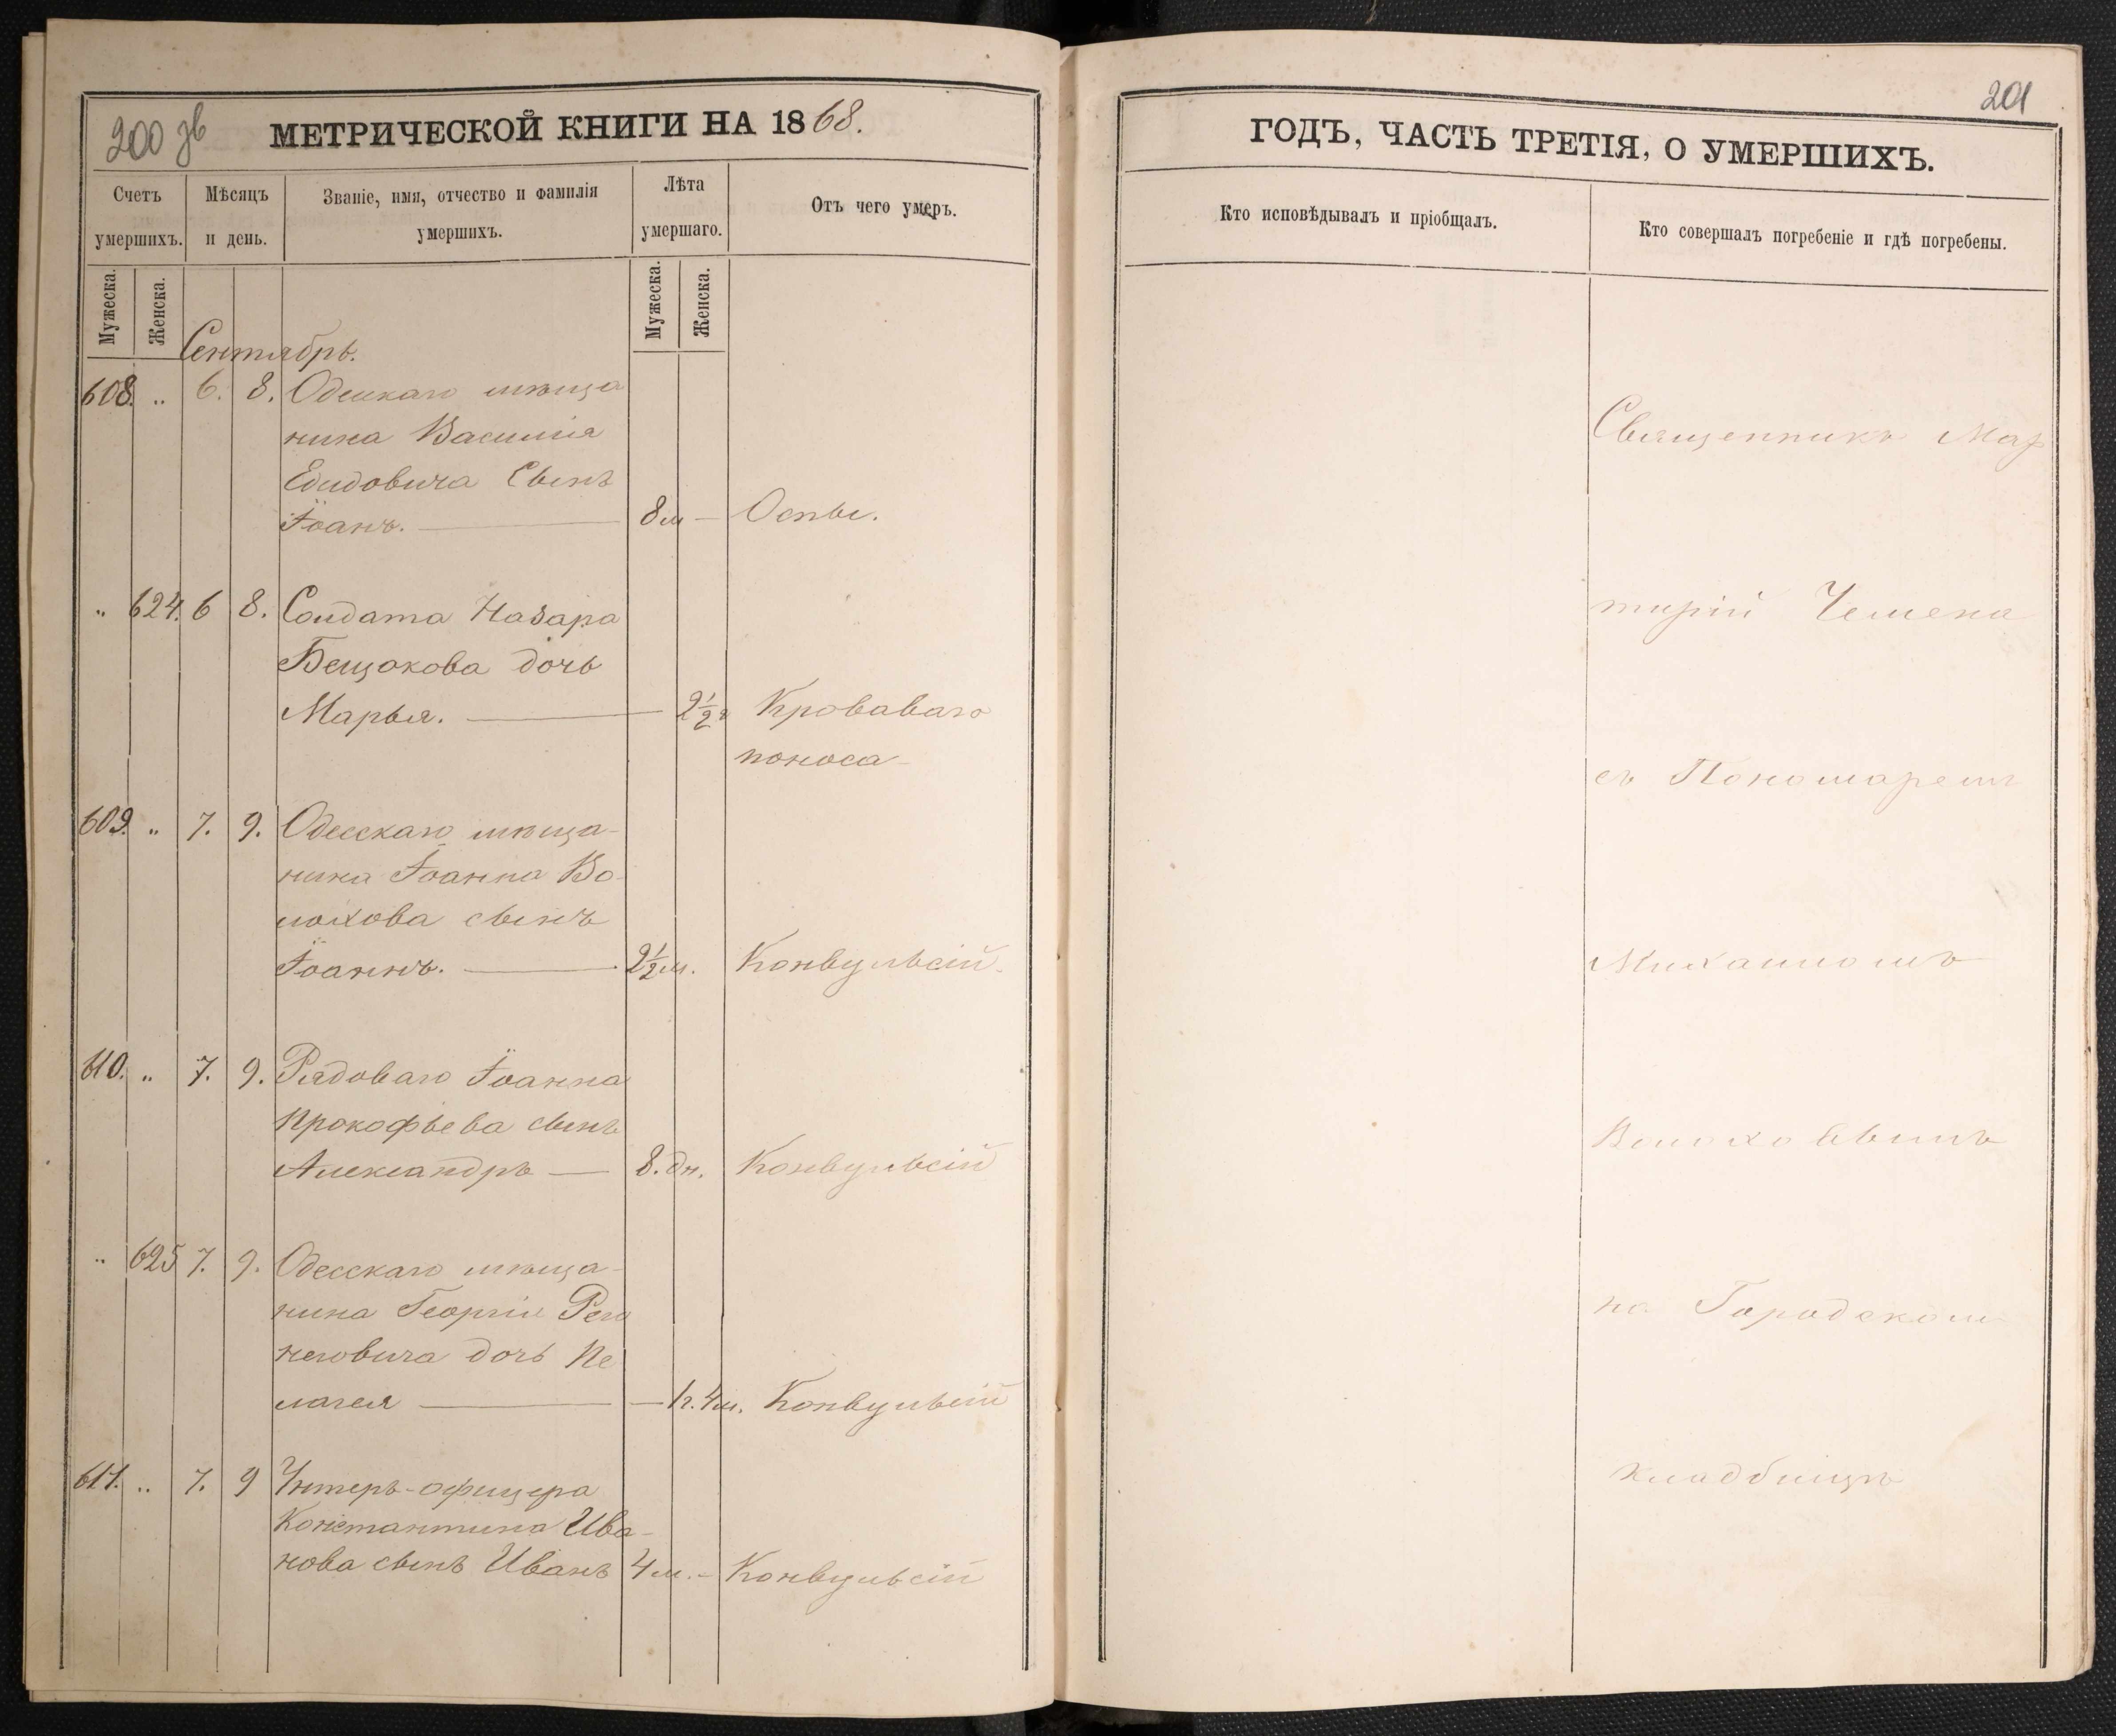 200 зв
МЕТРИЧЕСКОЙ КНИГИ НА 1868.
Счетъ умершихъ.
Мѣсяцъ и день.
Званіе, имя, отчество и фамилія умершихъ.
Лѣта умершаго.
Отъ чего умеръ.
Мужеска.
Женска.
Мужеска.
Женска.
Сентябрь.
608. „ 6. 8. Одесскаго мѣща
нина Василія
Едидовича Сынъ
Іоанъ. — 8 м — Оспы.
„ 624. 6 8. Солдата Назара
Бещокова дочь
Марья. — 2½ г Кроваваго
поноса
609. „ 7. 9. Одесскаго мѣща-
нина Іоанна Во-
лохова сынъ
Іоаннъ. — 2½ м. Конвульсій.
610. „ 7. 9. Рядоваго Іоанна
Прокофьева сынъ
Александръ — 8. дн. Конвульсій
„ 625 7. 9. Одесскаго мѣща-
нина Георгія
дочь Пе
лагея — 1 г. 4 м. Конвульсій
611. „ 7. 9 Унтеръ-офицера
Константина Ива-
нова сынъ Иванъ 4 м. - Конвульсій
201
ГОДЪ, ЧАСТЬ ТРЕТІЯ, О УМЕРШИХЪ.
Кто исповѣдывалъ и пріобщалъ.
Кто совершалъ погребеніе и гдѣ погребены.
Священникъ Мар
тирій Чемена
съ Пономаремъ
Михаиломъ
Волоховымъ
на Городскомъ
кладбищѣ